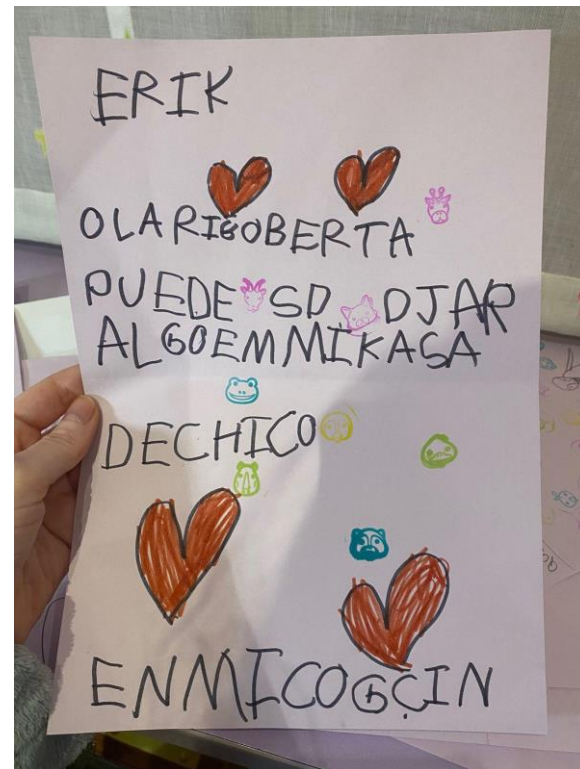 ERIK
OLARIGOBERTA
PUEDE SD DJAR
ALGOEMMIKASA
DECHICO
ENMICOGÇIN